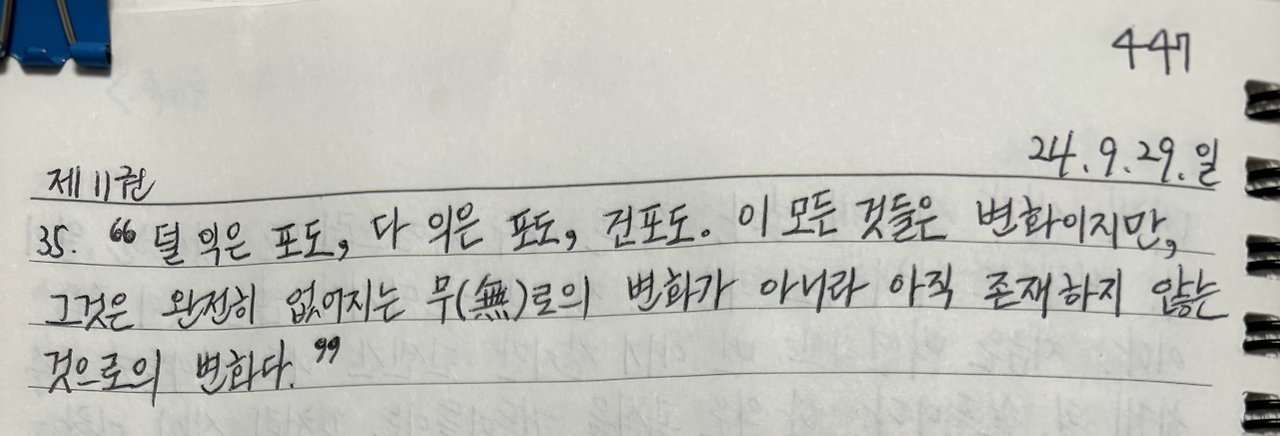 447
24.9.29.일
제11권
35. “덜 익은 포도, 다 익은 포도, 건포도. 이 모든 것들은 변화이지만,
그것은 완전히 없어지는 무(無)로의 변화가 아니라 아직 존재하지 않는
것으로의 변화다.”